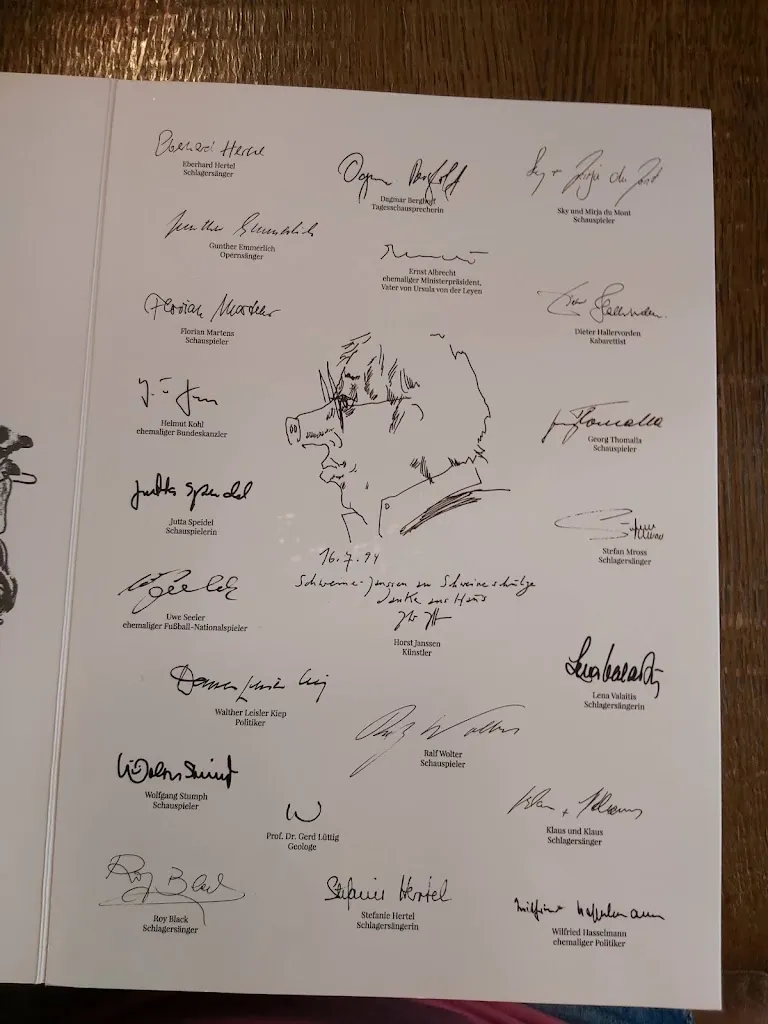 Eberhard Hertel
Eberhard Hertel
Schlagersänger
Dagmar Berghoff
Dagmar Berghoff
Tagesschausprecherin
Sky + Mirja du Mont
Sky und Mirja du Mont
Schauspieler
Gunther Emmerlich
Gunther Emmerlich
Opernsänger
Ernst Albrecht
ehemaliger Ministerpräsident,
Vater von Ursula von der Leyen
Florian Martens
Florian Martens
Schauspieler
Dieter Hallervorden
Dieter Hallervorden
Kabarettist
Helmut Kohl
ehemaliger Bundeskanzler
Thomalla
Georg Thomalla
Schauspieler
Jutta Speidel
Jutta Speidel
Schauspielerin
Stefan Mross
Schlagersänger
16.7.94
Danke ans Haus
Horst Janssen
Künstler
Uwe Seeler
Uwe Seeler
ehemaliger Fußball-Nationalspieler
Lena Valaitis
Lena Valaitis
Schlagersängerin
Walther Leisler Kiep
Politiker
Ralf Wolter
Ralf Wolter
Schauspieler
Wolfgang Stumph
Schauspieler
Prof. Dr. Gerd Lüttig
Geologe
Klaus + Klaus
Klaus und Klaus
Schlagersänger
Roy Black
Roy Black
Schlagersänger
Stefanie Hertel
Stefanie Hertel
Schlagersängerin
Wilfried Hasselmann
Wilfried Hasselmann
ehemaliger Politiker